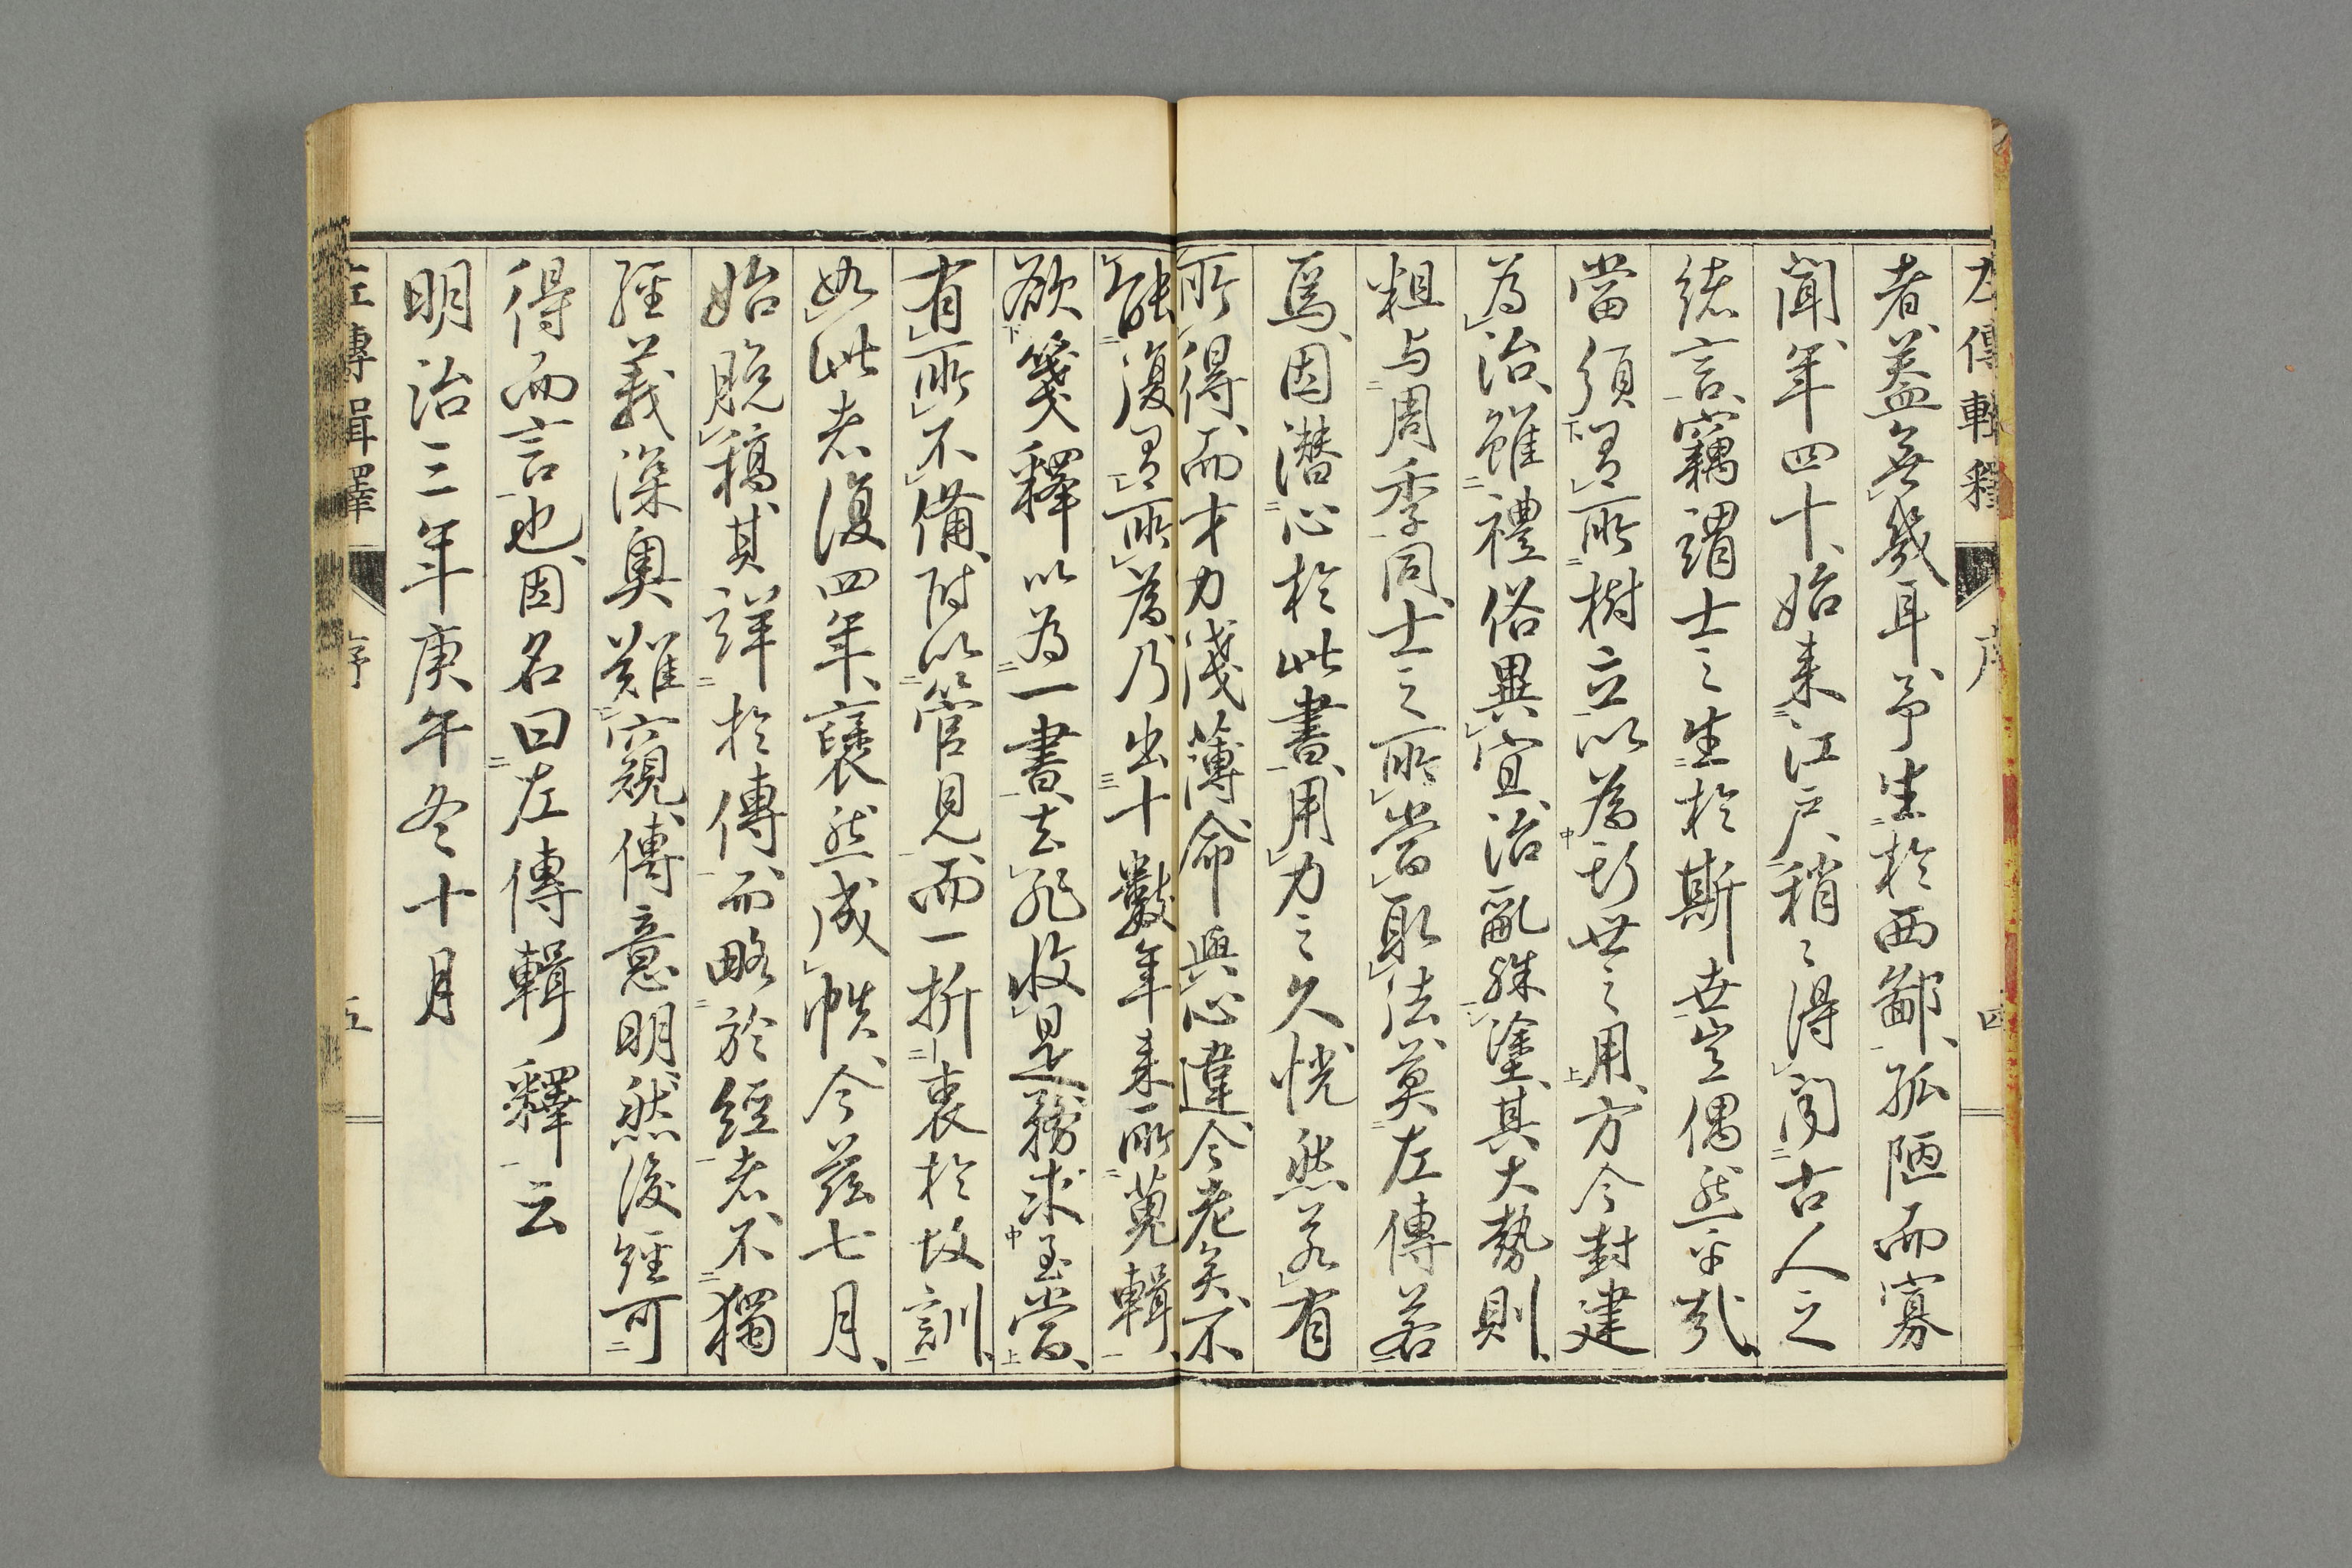 左傳輯釋 序 四
者、蓋無幾耳、予生於西鄙、孤陋而寡
聞、年四十、始来江戸、稍〻得聞古人之
緒言、竊謂士之生於斯世、豈偶然乎哉、
當須有所樹立以為斯世之用、方今封建
為治、雖禮俗異宜、治亂殊塗、其大勢則、
粗与周季同、士之所當取法、莫左傳若
焉、因潜心於此書、用力之久、恍然若有
所得、而才力淺薄、命與心違、今老矣、不
能復有所為、乃出十數年来所蒐輯、
欲箋釋以為一書、去非收是、務求至當、
有所不備、附以管見、而一折衷於故訓、
如此者復四年、裒然成帙、今茲七月、
始脱稿、其詳於傳、而略於經者、不獨
經義深奥難窺、傳意明、然後經可
得而言也、因名曰左傳輯釋云
明治三年庚午冬十月
左傳輯釋 序 五